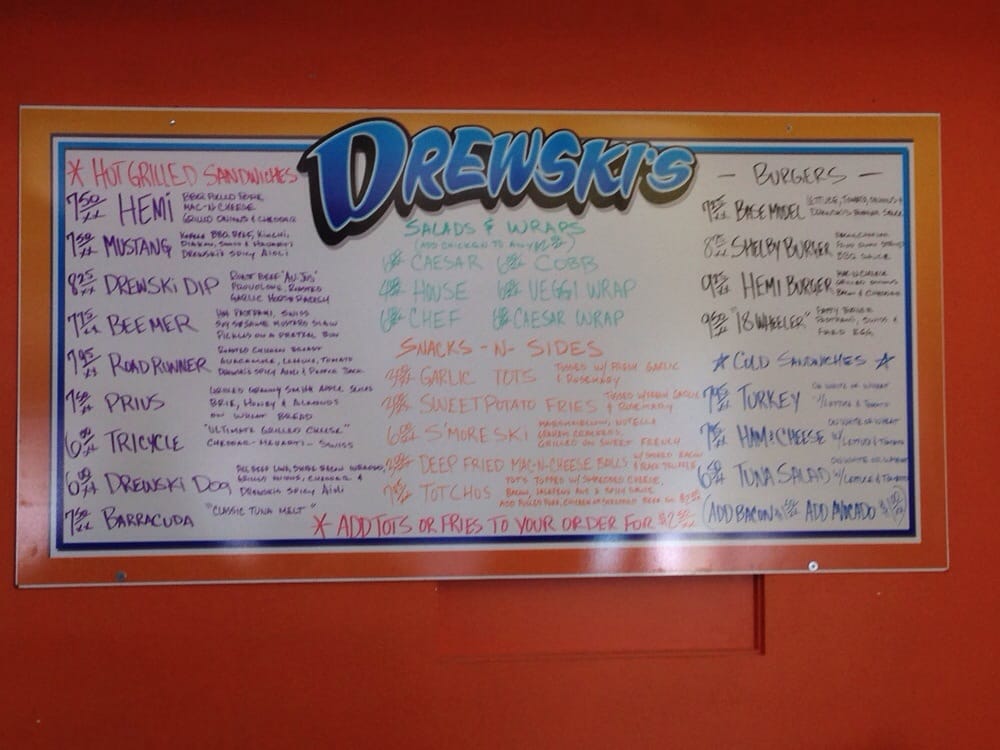 DREWSKI'S
* HOT GRILLED SANDWICHES
7.50 HEMI BBQ PULLED PORK
MAC-N-CHEESE
GRILLED ONIONS & CHEDDAR
7.50 MUSTANG BBQ BEEF, KIMCHI,
DREWSKI'S SPICY AIOLI
8.25 DREWSKI DIP ROAST BEEF "AU-JUS"
PROVOLONE, ROASTED
GARLIC HORSERADISH
7.75 BEEMER HOT PASTRAMI, SWISS
SOY SESAME MUSTARD SLAW
PICKLES ON A PRETZEL BUN
7.95 ROADRUNNER ROASTED CHICKEN BREAST
GUACAMOLE, LETTUCE, TOMATO
DREWSKI'S SPICY AIOLI & PEPPER JACK
7.50 PRIUS GRILLED GRANNY SMITH APPLE SLICES
BRIE, HONEY & ALMONDS
ON WHEAT BREAD
6.00 TRICYCLE "ULTIMATE GRILLED CHEESE"
CHEDDAR - HAVARTI - SWISS
6.00 DREWSKI DOG
GRILLED ONIONS, CHEDDAR &
DREWSKI'S SPICY AIOLI
7.50 BARRACUDA "CLASSIC TUNA MELT"
SALADS & WRAPS
(ADD CHICKEN TO ANY
CAESAR COBB
HOUSE VEGGI WRAP
CHEF CAESAR WRAP
SNACKS -N- SIDES
GARLIC TOTS TOSSED W/ FRESH GARLIC
& ROSEMARY
SWEET POTATO FRIES TOSSED W/ FRESH GARLIC
& ROSEMARY
S'MORESKI MARSHMALLOW, NUTELLA
GRAHAM CRACKERS,
GRILLED ON SWEET FRENCH
DEEP FRIED MAC-N-CHEESE BALLS W/ SMOKED BACON
& BLACK TRUFFLE
TOTCHOS TOTS TOPPED W/ SHREDDED CHEESE,
BACON, JALAPENO
ADD PULLED PORK, CHICKEN OR SHREDDED BEEF
* ADD TOTS OR FRIES TO YOUR ORDER FOR $2.50
- BURGERS -
BASE MODEL LETTUCE, TOMATO, ONIONS &
DREWSKI'S BURGER SAUCE
SHELBY BURGER
BBQ SAUCE
HEMI BURGER MAC-N-CHEESE
GRILLED ONIONS
BACON & CHEDDAR
9.50 "18 WHEELER" PATTY BURGER
PASTRAMI, SWISS &
FRIED EGG
* COLD SANDWICHES *
TURKEY ON WHITE OR WHEAT
W/ LETTUCE & TOMATO
HAM & CHEESE ON WHITE OR WHEAT
W/ LETTUCE & TOMATO
TUNA SALAD ON WHITE OR WHEAT
W/ LETTUCE & TOMATO
(ADD BACON ADD AVOCADO